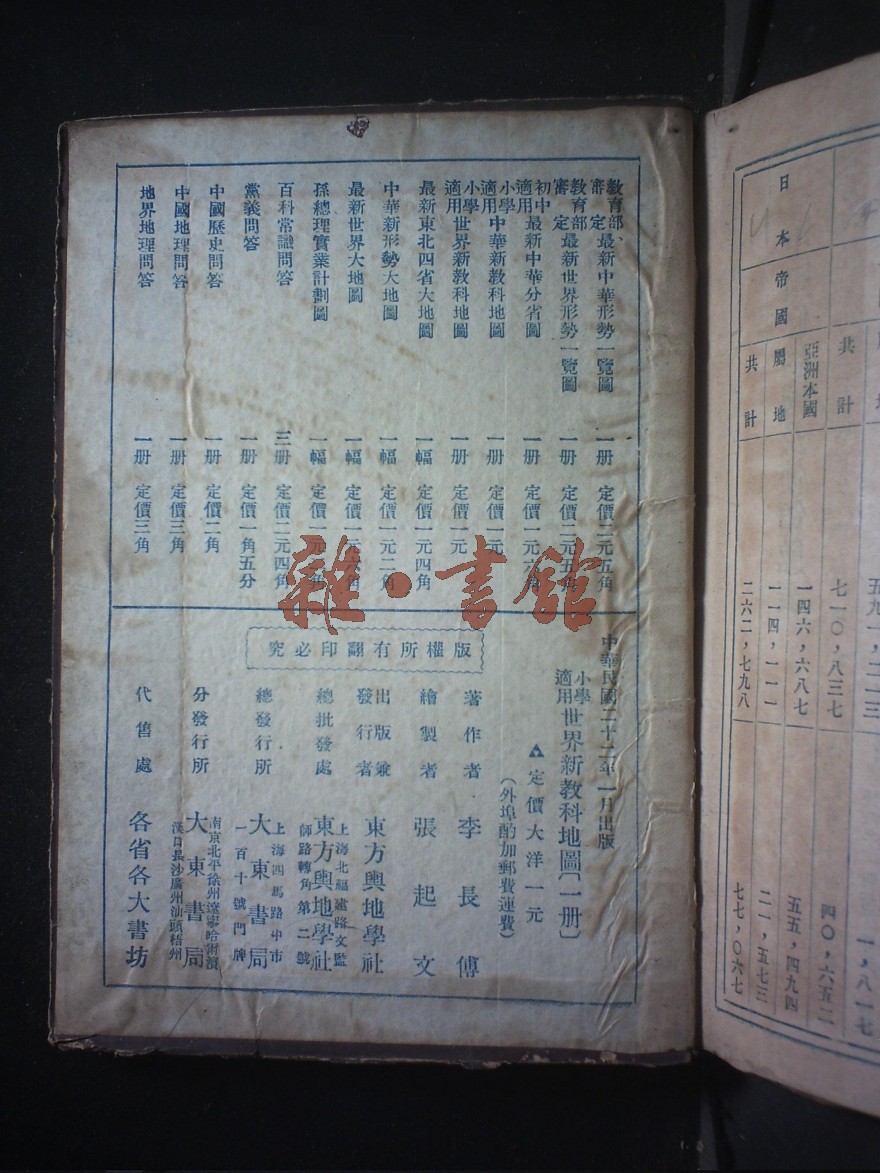 教育部審定 最新中華形勢一覽圖 一册 定價二元五角
教育部審定 最新世界形勢一覽圖 一册 定價二元五角
初中適用 最新中華分省圖 一册 定價一元六角
小學適用 中華新教科地圖 一册 定價一元
小學適用 世界新教科地圖 一册 定價一元
最新東北四省大地圖 一幅 定價一元四角
中華新形勢大地圖 一幅 定價一元二角
最新世界大地圖 一幅 定價一元六角
孫總理實業計劃圖 一幅 定價一元 角
百科常識問答 三册 定價二元四角
黨義問答 一册 定價一角五分
中國歷史問答 一册 定價二角
中國地理問答 一册 定價三角
地界地理問答 一册 定價三角
雜·書館
中華民國二十二年一月出版
小學適用 世界新教科地圖〔一册〕
定價大洋一元
(外埠酌加郵費運費)
版權所有翻印必究
著作者 李長傅
繪製者 張起文
出版兼發行者 東方輿地學社
總批發處 上海北福建路文監師路轉角第二號 東方輿地學社
總發行所 上海四馬路中市一百十號門牌 大東書局
分發行所 南京北平徐州遼寧哈爾濱漢口長沙廣州汕頭梧州 大東書局
代售處 各省各大書坊
日本帝國
共計 七一〇,八三七 四〇,六五二
亞洲本國 一四六,六八七 五五,四九四
屬地 一一四,一一一 二一,五七三
共計 二六二,七九八 七七,〇六七
一,八一七